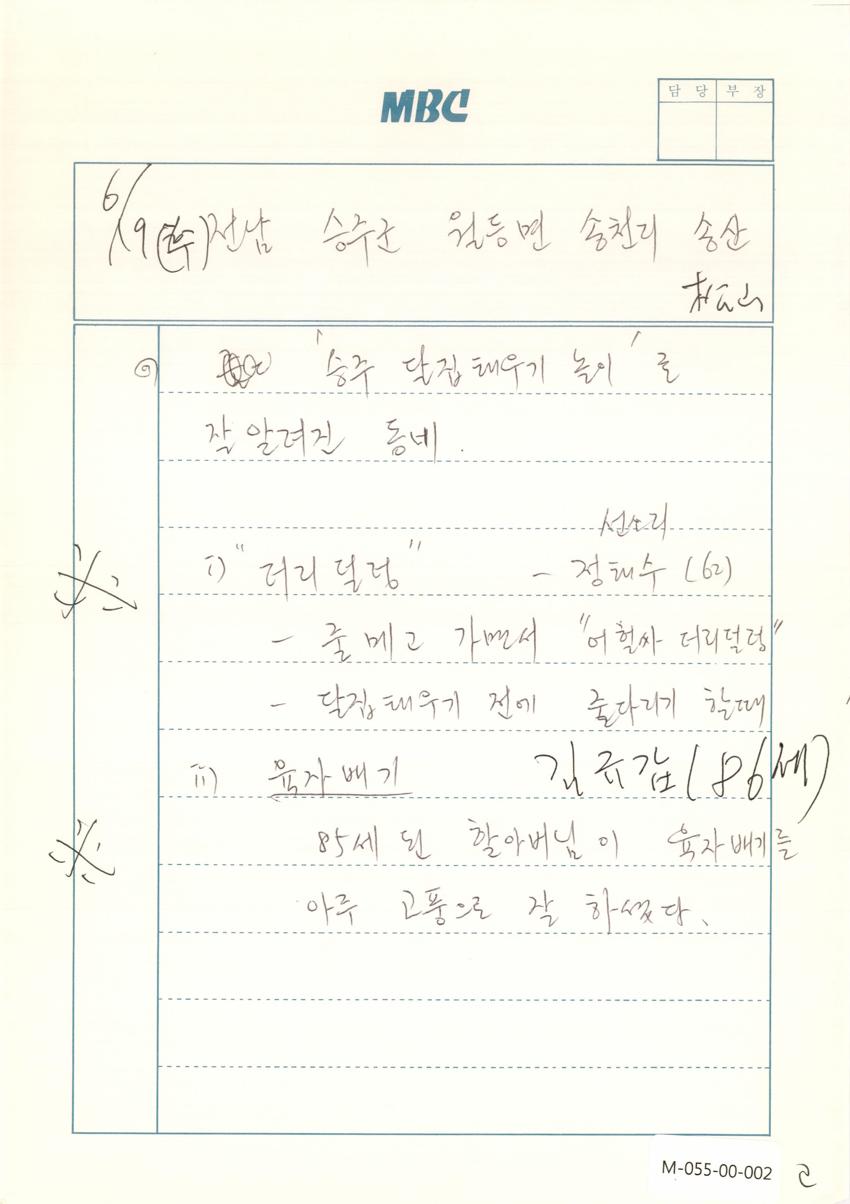 MBC
담 당 부 장
6/19(수) 전남 승주군 월등면 송천리 송산
松山
'승주 달집태우기 놀이'로
잘 알려진 동네.
선소리
i) "더리덜렁" - 정태수 (62)
- 줄메고 가면서 "어헐싸 더리덜렁"
- 달집태우기 전에 줄다리기 할때
ii) 육자배기 김규갑(86세)
85세 된 할아버님이 육자배기를
아주 고풍으로 잘 하셨다.
M-055-00-002 2